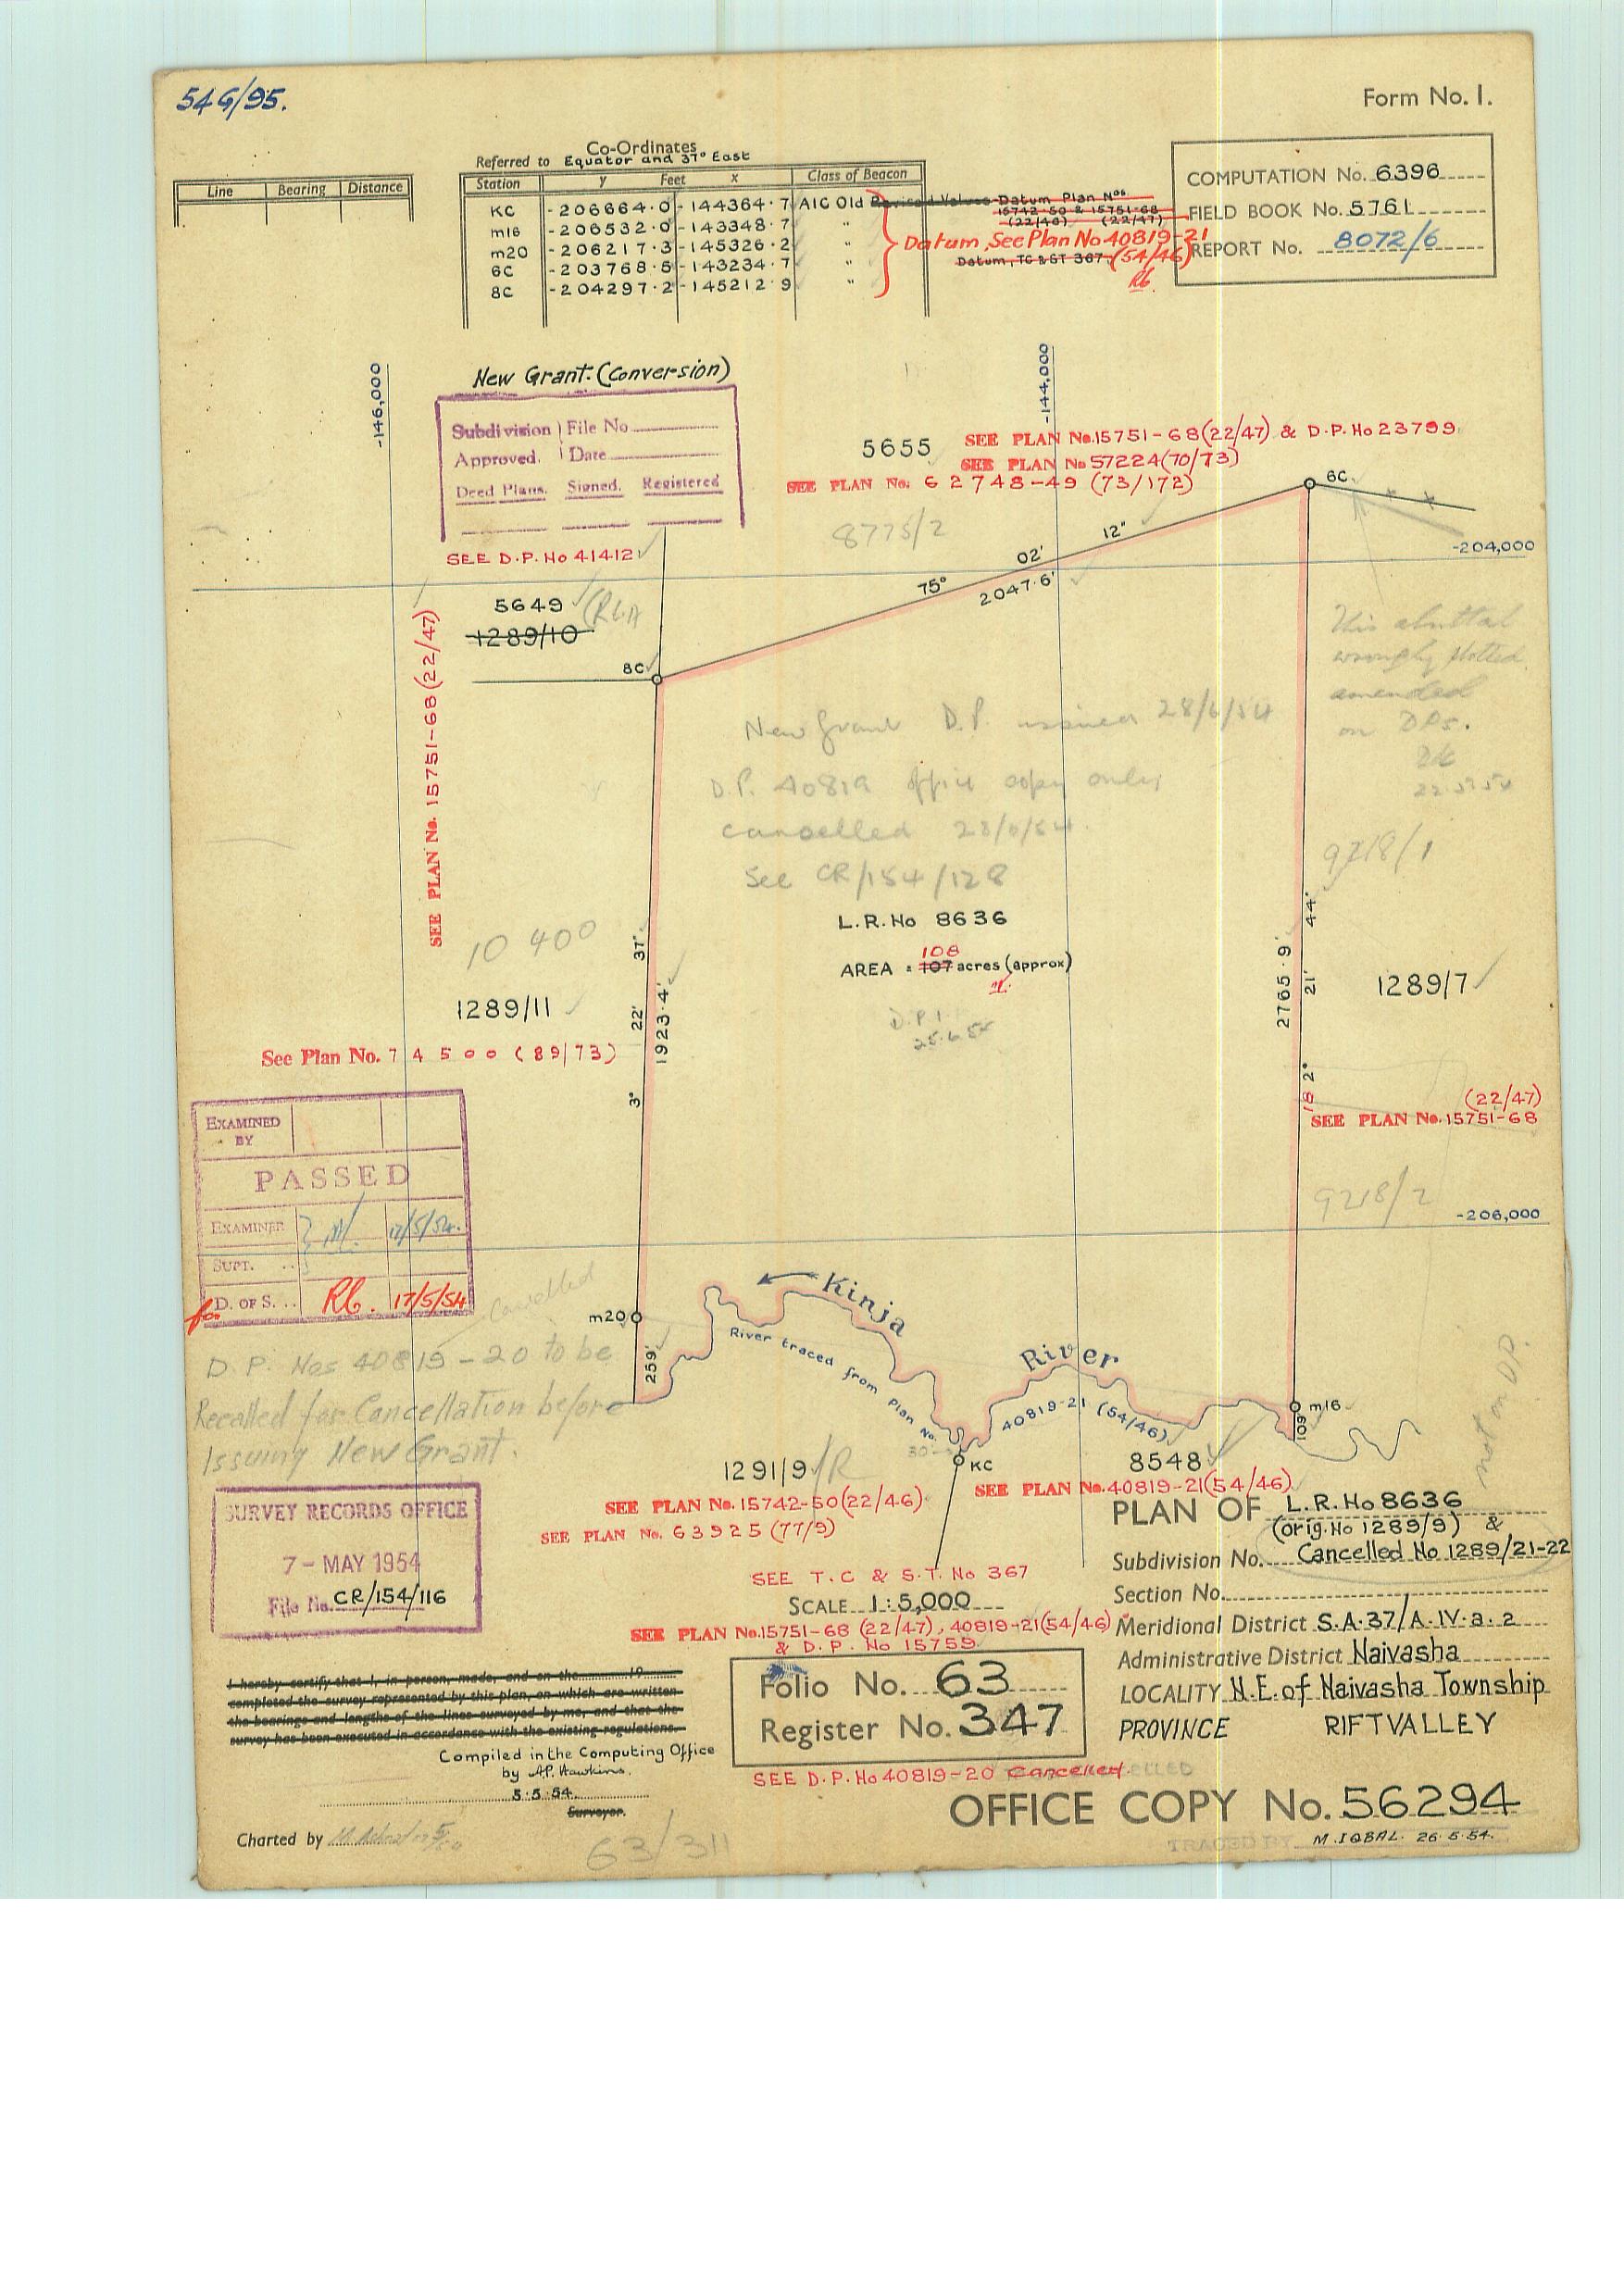 54G/95.
Form No. 1.
Line Bearing Distance
Co-Ordinates
Referred to Equator and 37° East
Station y Feet x Class of Beacon
KC -206664.0 -144364.7 A1C Old Revised Values Datum Plan Nos
m16 -206532.0 -143348.7 "
m20 -206217.3 -145326.2 "
6C -203768.5 -143234.7 "
8C -204297.2 -145212.9 "
15742-50 & 15751-68
(22/46) (22/47)
Datum, See Plan No 40819-21
Datum, TC & ST 367. (54/46)
Rb.
COMPUTATION No. 6396
FIELD BOOK No. 5761
REPORT No. 8072/6
-146,000
-144,000
New Grant. (Conversion)
Subdivision File No
Approved. Date
Deed Plans. Signed. Registered
SEE D.P. No 41412
5655
SEE PLAN No. 15751-68 (22/47) & D.P. No 23799
SEE PLAN No 57224 (70/73)
SEE PLAN No. 62748-49 (73/172)
8775/2
6C
-204,000
75° 02' 12"
2047.6'
5649
1289/10
8C
SEE PLAN No. 15751-68 (22/47)
This abuttal
wrongly plotted
amended
on DPs.
New Grant D.P. issued 28/6/54
D.P. 40819 office copy only
cancelled 28/6/54.
See CR/154/128
L.R. No 8636
108
AREA = 107 acres (approx)
D.P.1.
25.6.54
9218/1
10400
1289/11
See Plan No. 74500 (89/73)
3° 22' 37"
1923.4'
2765.9'
182° 21' 44"
1289/7
(22/47)
SEE PLAN No. 15751-68
9218/2
-206,000
EXAMINED
BY
PASSED
EXAMINER 17/5/54.
SUPT.
for D. OF S. Rb. 17/5/54
Cancelled
D.P. Nos 40819-20 to be
Recalled for Cancellation before
Issuing New Grant.
m20
259'
Kinja River
River traced from Plan No. 40819-21 (54/46)
m16
109'
KC
not on DP.
1291/9
8548
SEE PLAN No. 15742-50 (22/46)
SEE PLAN No. 40819-21 (54/46)
SEE PLAN No. 63925 (77/9)
SEE T.C & S.T. No 367
SCALE 1:5,000
SEE PLAN No. 15751-68 (22/47), 40819-21 (54/46)
& D.P. No 15759
SURVEY RECORDS OFFICE
7 - MAY 1954
File No. CR/154/116
PLAN OF L.R. No 8636
(orig. No 1289/9) &
Subdivision No. Cancelled No 1289/21-22
Section No.
Meridional District S.A.37/A.IV.a.2
Administrative District Naivasha
LOCALITY N.E. of Naivasha Township
PROVINCE RIFT VALLEY
I hereby certify that I, in person, made, and on the 19
completed the survey represented by this plan, on which are written
the bearings and lengths of the lines surveyed by me, and that the
survey has been executed in accordance with the existing regulations.
Compiled in the Computing Office
by A.P. Hawkins.
5.5.54.
Surveyor.
Charted by
Folio No. 63
Register No. 347
SEE D.P. No 40819-20 Cancelled
OFFICE COPY No. 56294
TRACED BY M. IQBAL. 26.5.54.
63/311